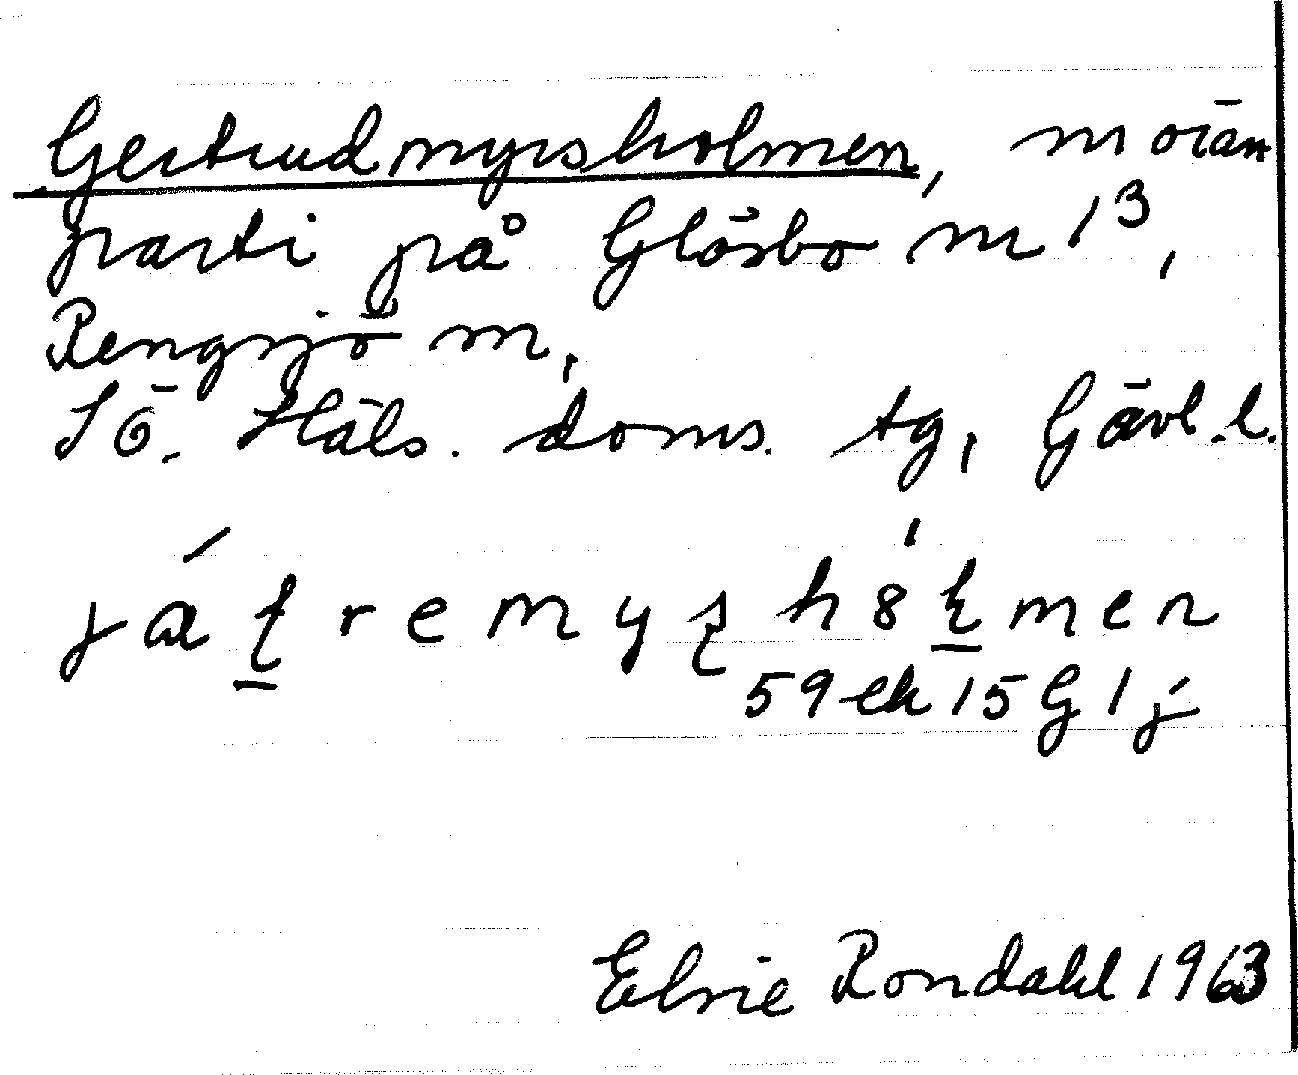 Gertrudmyrsholmen, morän
parti på Glösbo m 1³,
Rengsjö sn,
Sö. Häls. doms. tg, Gävl.l.
59 ek 15 G 1 j
Elvie Rondahl 1963